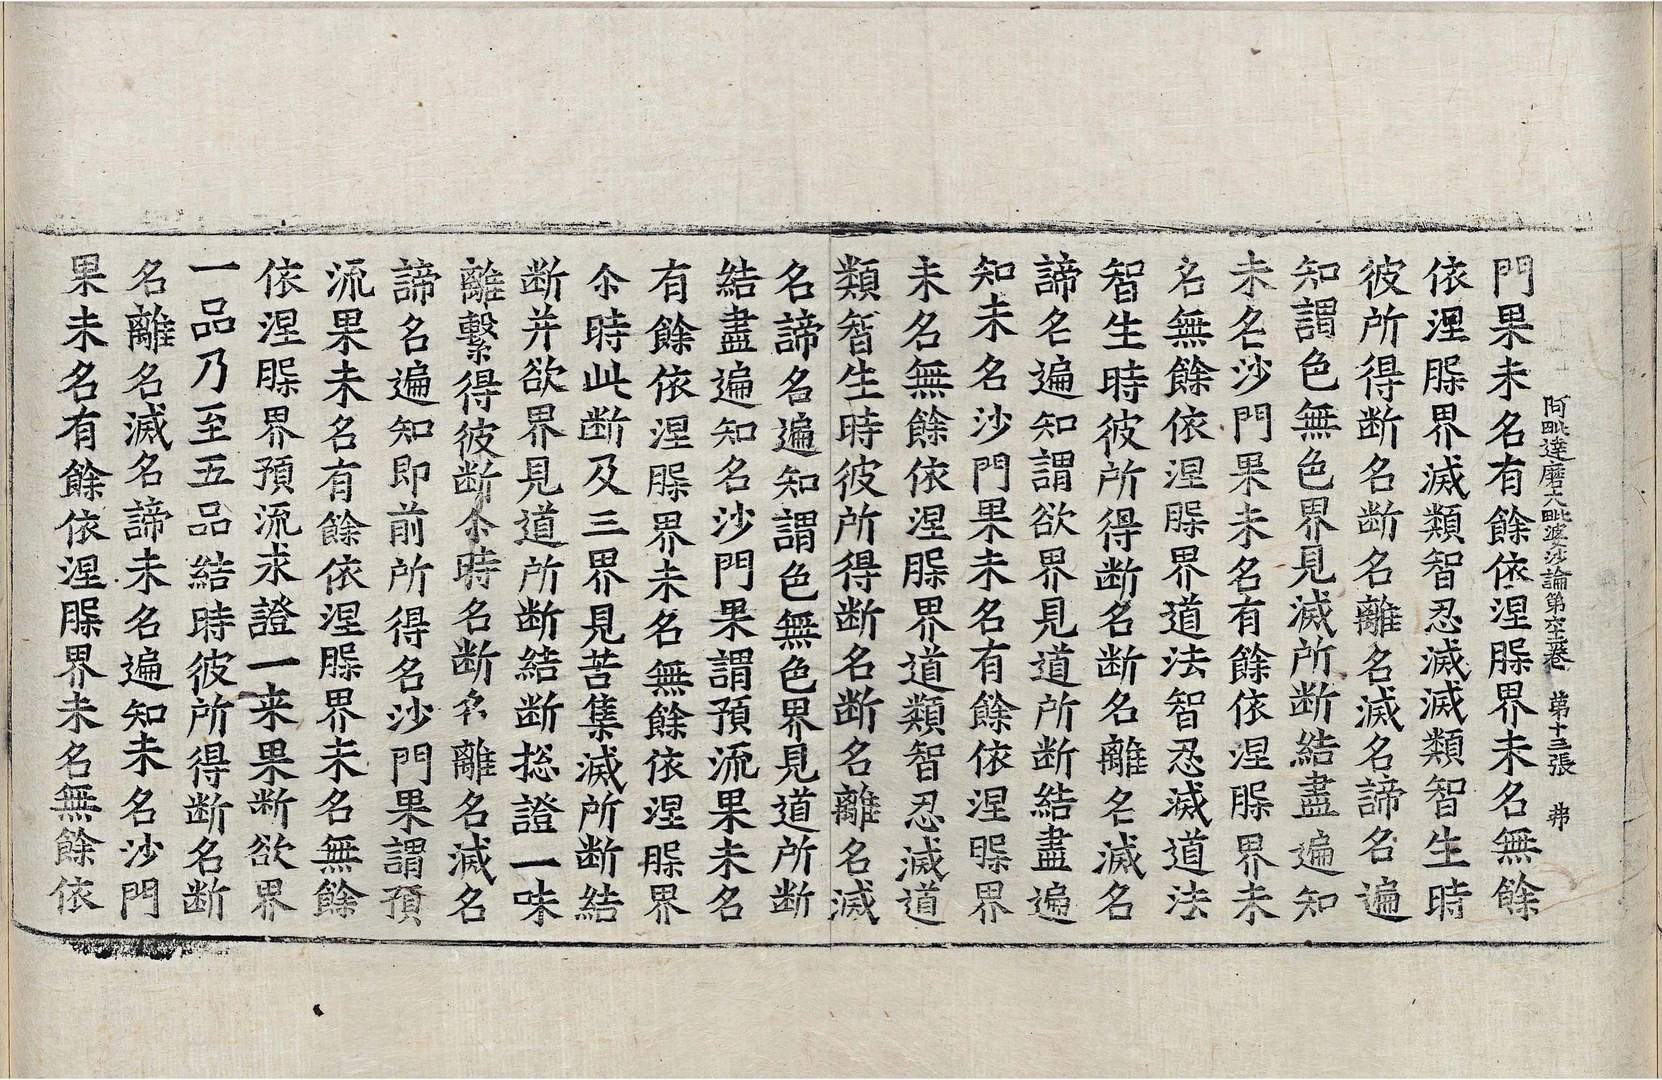 阿毗達磨大毗婆沙論第空三卷 第十三張 弗
門果未名有餘依涅縣界未名無餘
依涅縣界滅類智忍滅滅類智生時
彼所得断名断名離名滅名諦名遍
知謂色無色界見滅所断結盡遍知
未名沙門果未名有餘依涅縣界未
名無餘依涅縣界道法智忍滅道法
智生時彼所得断名断名離名滅名
諦名遍知謂欲界見道所断結盡遍
知未名沙門果未名有餘依涅縣界
未名無餘依涅縣界道類智忍滅道
類智生時彼所得断名断名離名滅
名諦名遍知謂色無色界見道所断
結盡遍知名沙門果謂預流果未名
有餘依涅縣界未名無餘依涅縣界
尒時此断及三界見苦集滅所断結
断并欲界見道所断結断捴證一味
離繫得彼断尒時名断名離名滅名
諦名遍知即前所得名沙門果謂預
流果未名有餘依涅縣界未名無餘
依涅縣界預流求證一来果断欲界
一品乃至五品結時彼所得断名断
名離名滅名諦未名遍知未名沙門
果未名有餘依涅縣界未名無餘依